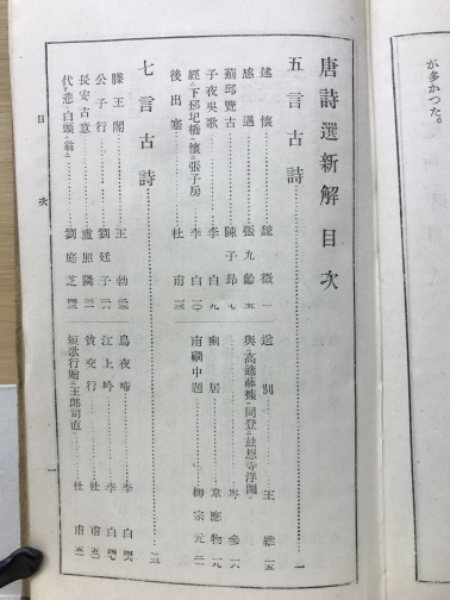 が多かつた。
唐詩選新解目次
五言古詩……一
述懐……魏徴一
感遇……張九齢五
薊邱覽古……陳子昂七
子夜呉歌……李白九
經下邳圯橋懷張子房……李白一〇
後出塞……杜甫一三
送別……王維一五
與高適薛據同登慈恩寺浮圖……岑參一六
幽居……韋應物一九
南磵中題……柳宗元二一
七言古詩……二三
滕王閣……王勃二三
公子行……劉廷芝二六
長安古意……盧照隣三一
代悲白頭翁……劉庭芝四三
烏夜啼……李白四六
江上吟……李白四七
貧交行……杜甫五〇
短歌行贈王郎司直……杜甫五一
目次
一